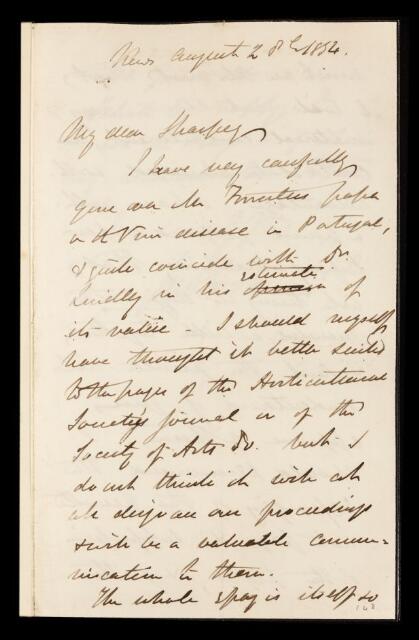 Kew August 28th 1854.
My dear Sharpey
I have very carefully
gone over Mr Forresters paper
on the Vine disease in Portugal,
& quite coincide with Dr
Lindley in his estimate of
its value - I should myself
have thought it better suited
to the pages of the Horticultural
Society's Journal or of the
Society of Arts &c. but I
do not think it will at
all disgrace our proceedings
& will be a valuable commu-
nication to them.
The whole is itself so